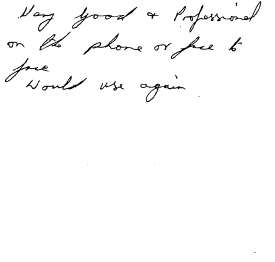 Very good & Professional
on the phone or face to
face
Would use again